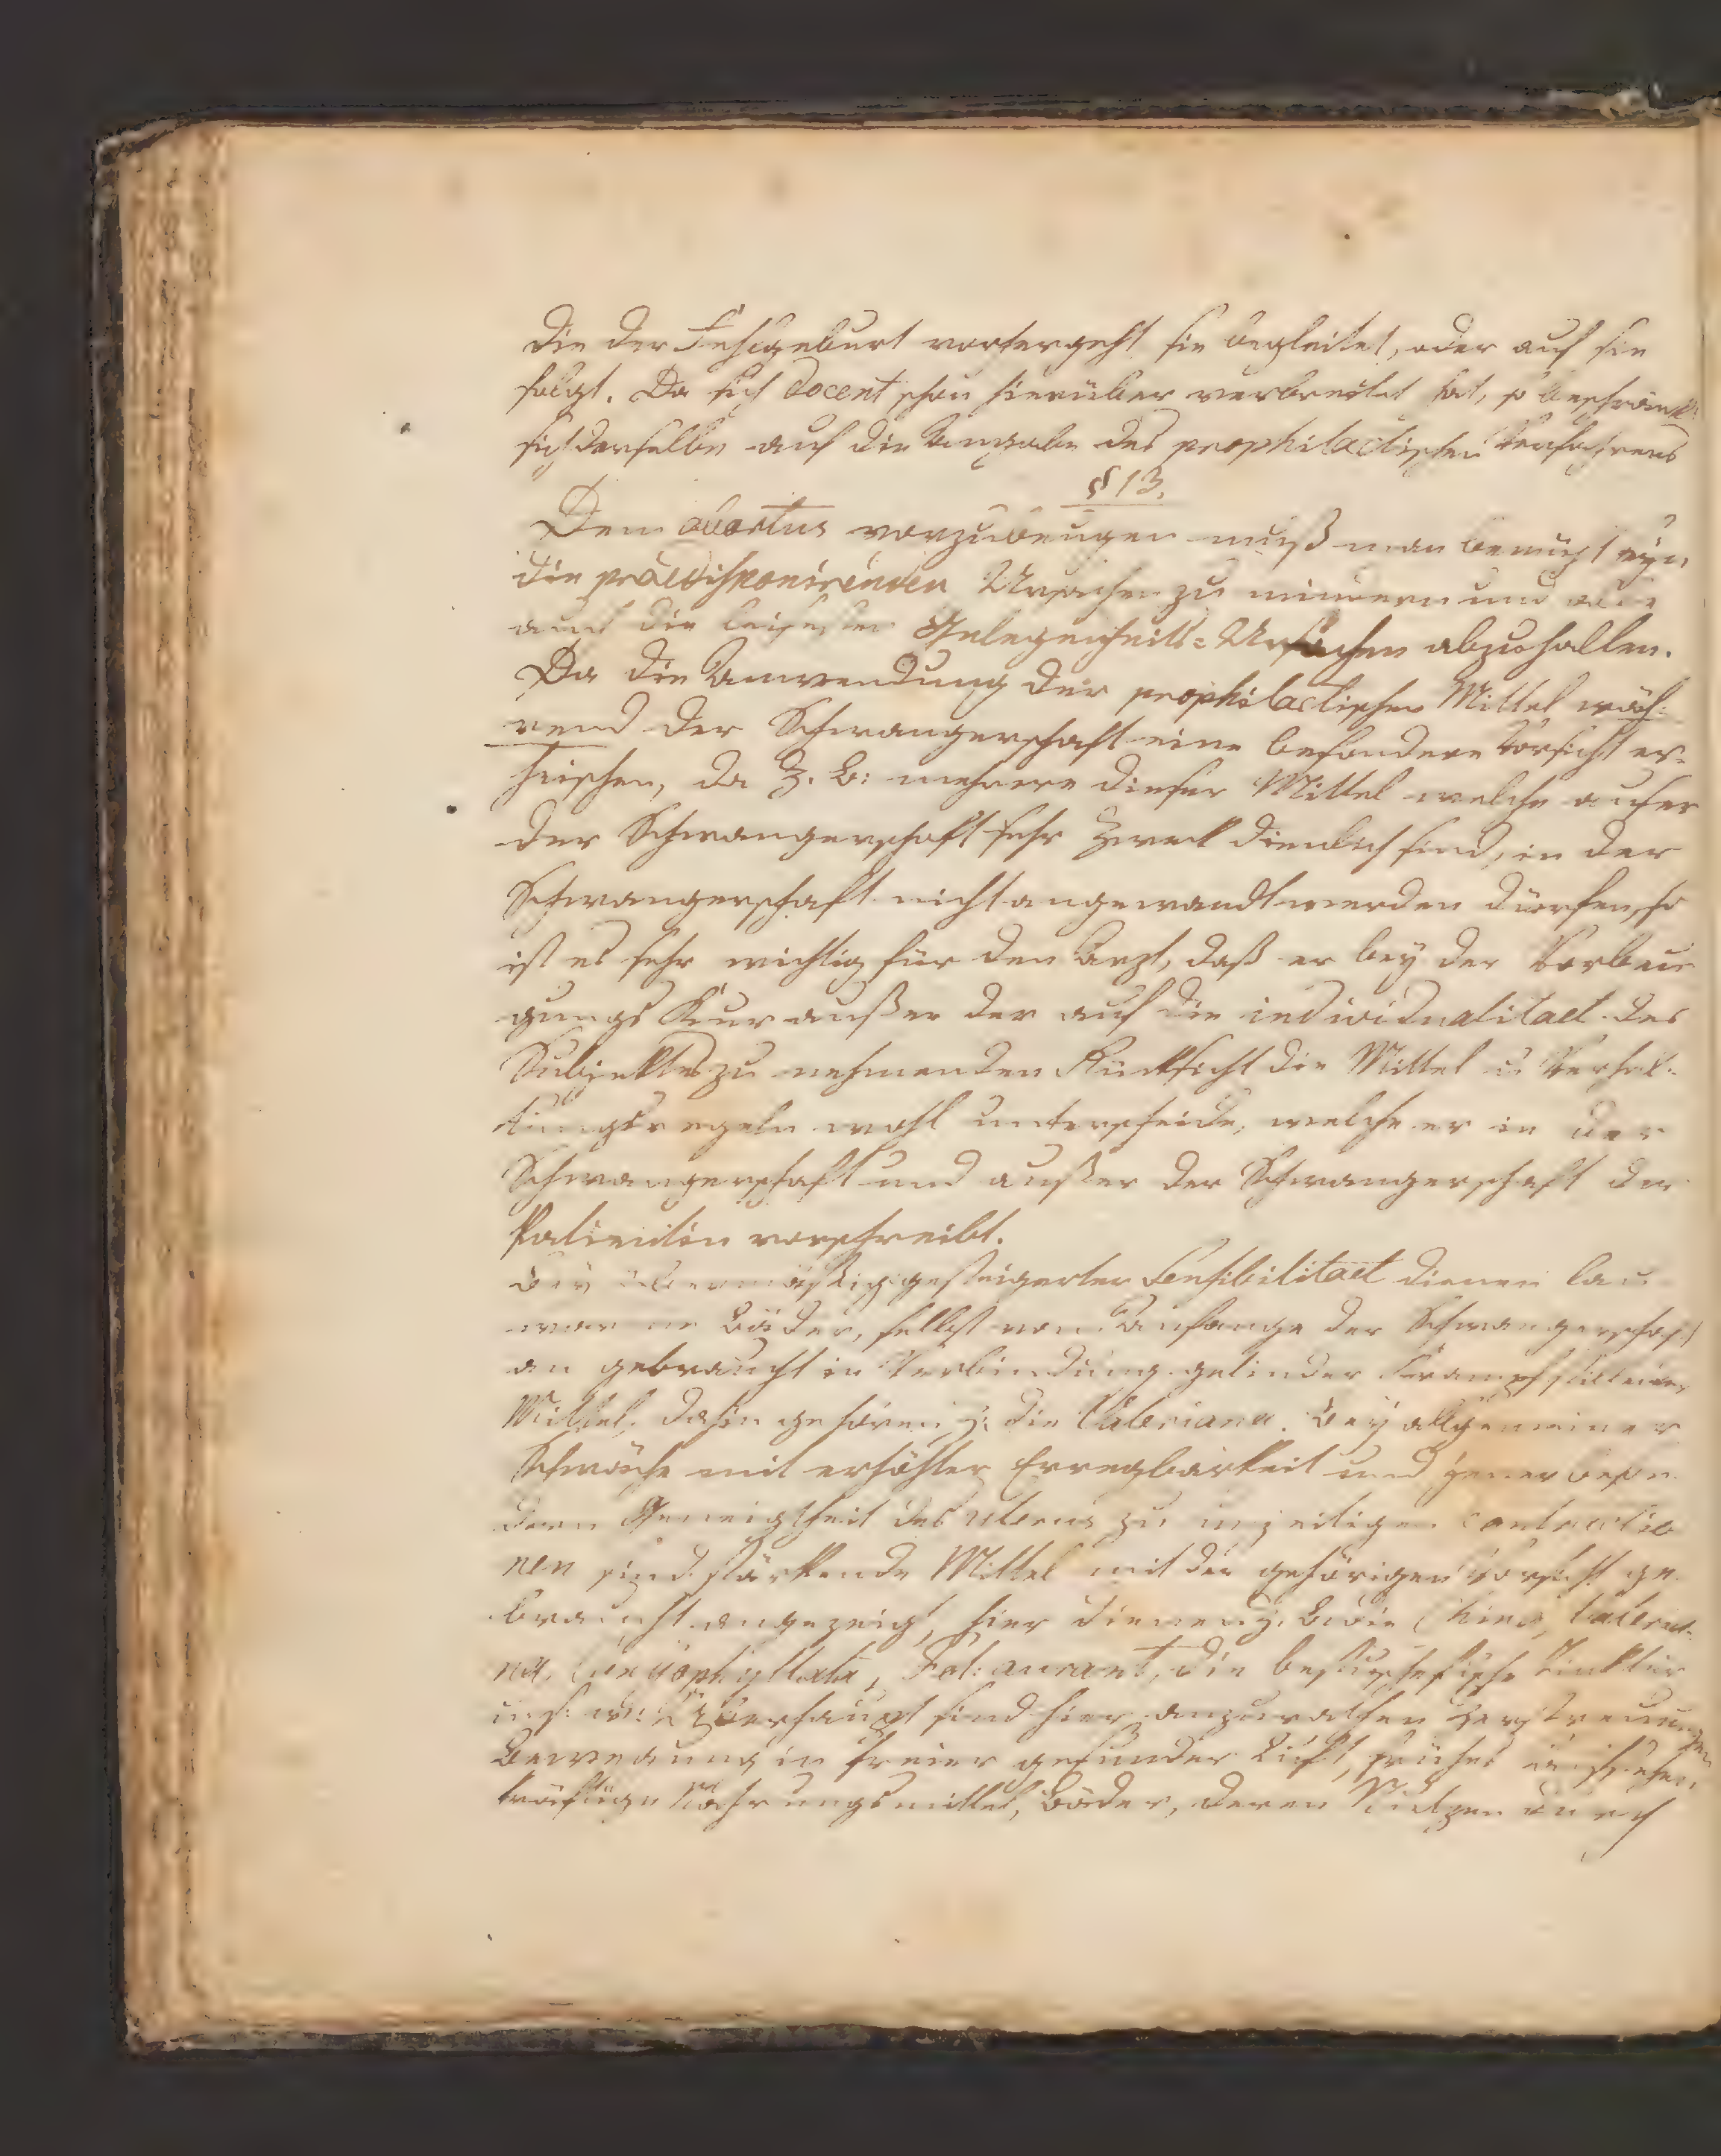 die der Fehlgeburt vorhergeht sie begleitet, oder auf sie
folgt. Da sich Docent schon hierüber verbreitet hat, so beschränkt
sich derselbe auf die Angabe des prophilactischen Verfahrens
§ 13.
Dem abortus vorzubeugen muß man bemüht seyn
die praedisponirenden Ursachen zu mindern und
auch die leisesten Gelegenheits=Ursachen abzuhalten.
Da die Anwendung der prophilactischen Mittel wäh=
rend der Schwangerschaft eine besondere Vorsicht er=
heischen, da z. B: mehrere dieser Mittel welche auser
der Schwangerschaft sehr Zweck dienlich sind, in der
Schwangerschaft nicht angewandt werden dürfen, so
ist es sehr wichtig für den Arzt, daß er bey der Vorbeu
gungs Kur außer der auf die individualitaet des
Subjektes zu nehmenden Rücksicht die Mittel u Verhal=
tungsregeln wohl unterscheide, welche er in der
Schwangerschaft und außer der Schwangerschaft der
Patientin vorschreibt.
Bey übermäßig gesteigerter Sensibilitaet dienen lau
warme Bäder, selbst vom Anfange der Schwangerschaft
an gebraucht in Verbindung gelinder Krampfstillender
Mittel, dahin gehören z. die Valeriana. Bey allgemeiner
Schwäche mit erhöhter Erregbarkeit und jener beson
dern Geneigtheit des uterus zu unzeitigen contractio
nen sind stärkende Mittel mit der gehörigen Vorsicht ge
braucht angezeigt, hier dienen z. B die China, Valeria=
na, Caryophyllata, Fol: aurant, die bestuschefische Tinktur
u. s. w. Überhaupt sind hier anzurathen Zerstreuungen
Bewegung in freier gesunder Luft, frühes
kräftige Nahrungsmittel, Bäder, deren Nutzen durch